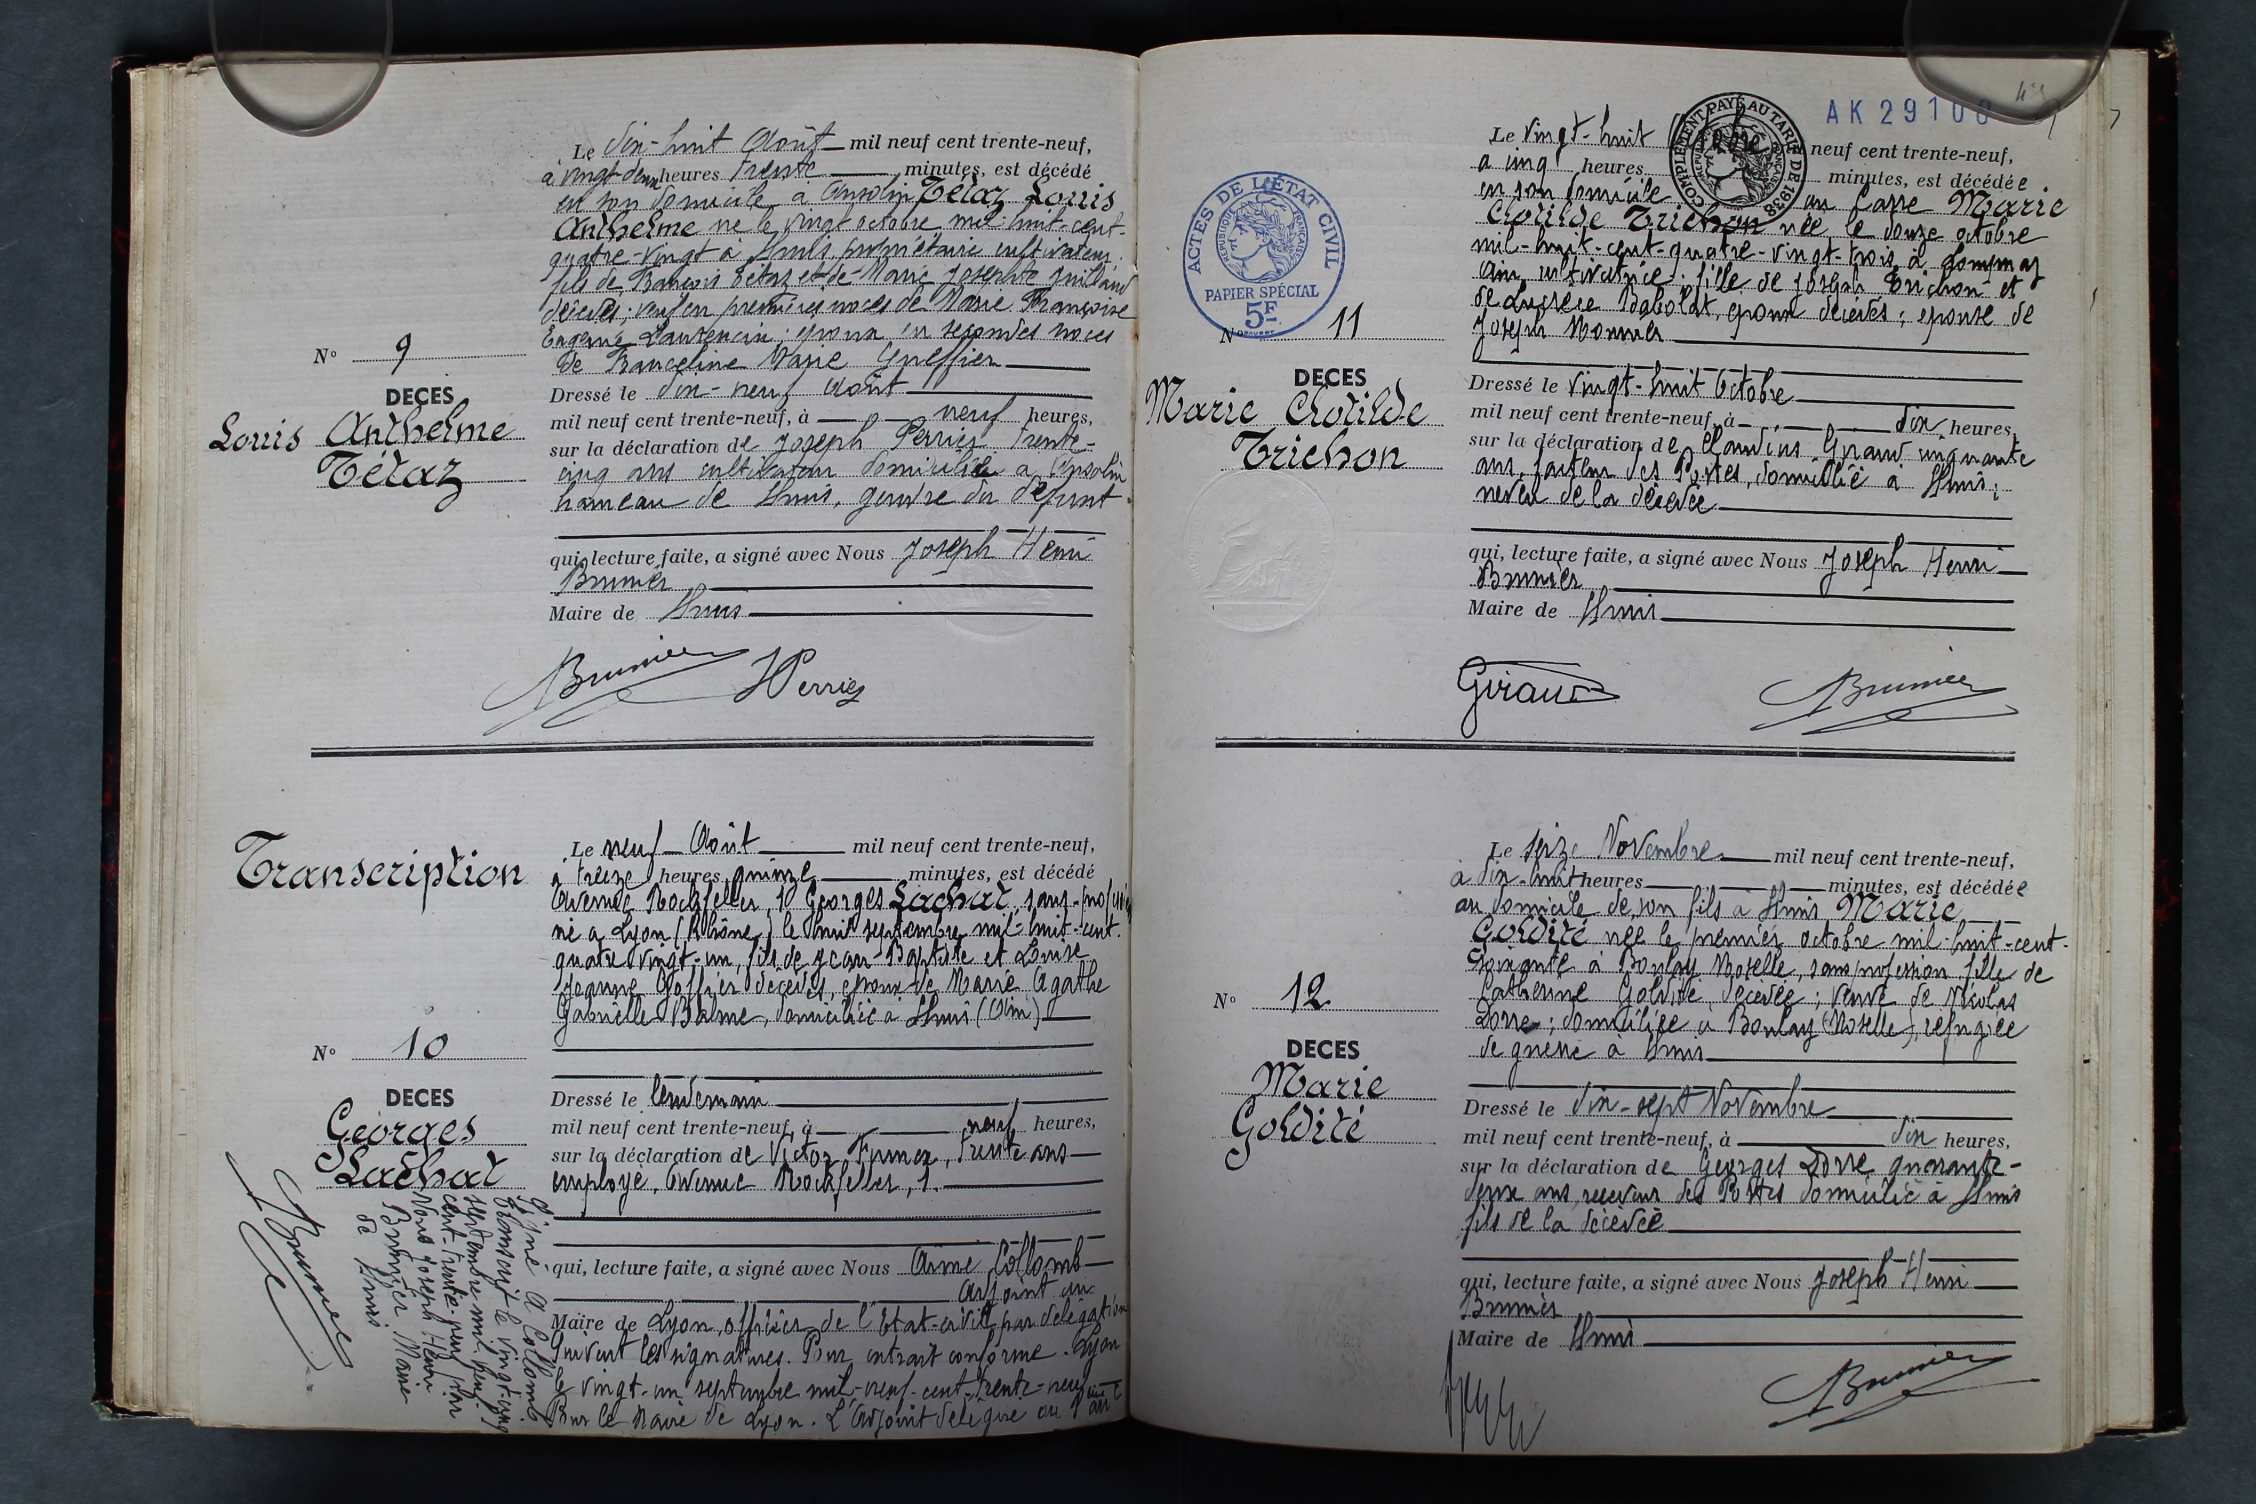 Le dix-huit Août mil neuf cent trente-neuf,
à vingt-deux heures trente minutes, est décédé
en son domicile à Ansolin Tétaz Louis
Anthelme né le vingt octobre mil-huit-cent-
quatre-vingt à Lhuis, propriétaire cultivateur.
fils de François Tétaz et de Marie Josephte
décédés; veuf en premières noces de Marie Françoise
Eugénie Laurencin; époux en secondes noces
de Franceline Marie Greffier
N° 9
DECES
Louis Anthelme
Tétaz
Dressé le dix-neuf Août
mil neuf cent trente-neuf, à neuf heures,
sur la déclaration de Joseph Perrier trente-
cinq ans cultivateur domicilié à Ansolin
hameau de Lhuis, gendre du défunt
qui, lecture faite, a signé avec Nous Joseph Henri
Brunier
Maire de Lhuis
Brunier
Transcription
Le neuf Août mil neuf cent trente-neuf,
à treize heures quinze minutes, est décédé
Avenue Rockfeller, 10 Georges Lachat, sans-profession
né à Lyon (Rhône) le huit septembre mil-huit-cent-
quatre-vingt-un, fils de Jean-Baptiste et Louise
Jeanne décédés, époux de Marie Agathe
Gabrielle Balme, domicilié à Lhuis (Ain)
N° 10
DECES
Georges
Lachat
Dressé le lendemain
mil neuf cent trente-neuf, à neuf heures,
sur la déclaration de Victor Fumex, trente ans
employé, Avenue Rockfeller, 1.
qui, lecture faite, a signé avec Nous Aimé Collomb
adjoint au
Maire de Lyon, officier de l'Etat-civil par délégation
Suivent les signatures. Pour extrait conforme. Lyon
le vingt-un septembre mil-neuf-cent-trente-neuf
Pour le Maire de Lyon. L'adjoint délégué
Signé A Collomb
Transcrit le vingt-cinq
septembre mil-neuf-
cent-trente-neuf par
Nous Joseph Henri
Brunier Maire
de Lhuis
Brunier
AK 29100
COMPLEMENT PAYÉ AU TARIF DE 1938
ACTES DE L'ÉTAT CIVIL
RÉPUBLIQUE FRANÇAISE
PAPIER SPÉCIAL
5F
Le vingt-huit neuf cent trente-neuf,
à cinq heures minutes, est décédée
en son domicile au Marie
Clotilde Trichon née le douze octobre
mil-huit-cent-quatre-vingt-trois à Lompnaz
Ain, cultivatrice, fille de Joseph Trichon et
de Lucrèce Babolat, époux décédés; épouse de
Joseph Monnier
N° 11
DECES
Marie Clotilde
Trichon
Dressé le vingt-huit Octobre
mil neuf cent trente-neuf, à dix heures,
sur la déclaration de Claudius Giraud cinquante
ans, facteur des Postes, domicilié à Lhuis;
neveu de la décédée
qui, lecture faite, a signé avec Nous Joseph Henri
Brunier
Maire de Lhuis
Giraud
Brunier
Le seize Novembre mil neuf cent trente-neuf,
à dix-huit heures minutes, est décédée
au domicile de son fils à Lhuis Marie
Goldité née le premier octobre mil-huit-cent-
soixante à Boulay Moselle, sans profession, fille de
Catherine Goldité, décédée; veuve de Nicolas
Dorre; domiciliée à Boulay (Moselle), réfugiée
de guerre à Lhuis
N° 12
DECES
Marie
Goldité
Dressé le dix-sept Novembre
mil neuf cent trente-neuf, à dix heures,
sur la déclaration de Georges Dorre quarante-
deux ans, receveur des Postes domicilié à Lhuis
fils de la décédée
qui, lecture faite, a signé avec Nous Joseph Henri
Brunier
Maire de Lhuis
Brunier